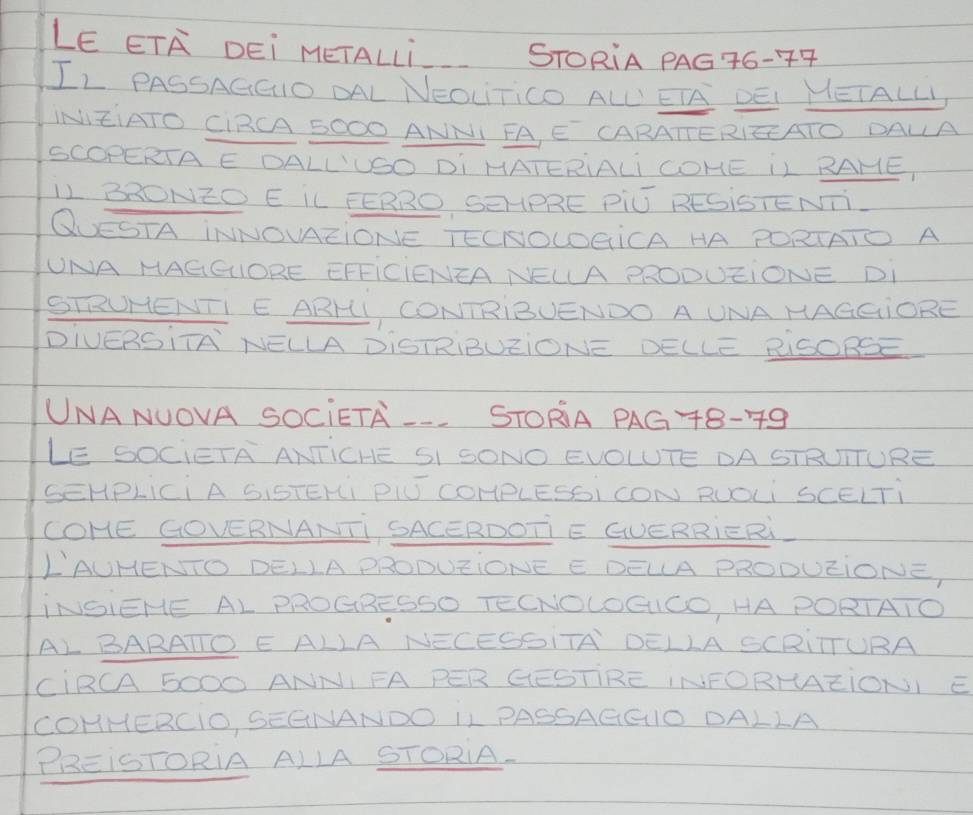 LE ETÀ DEI METALLI... STORIA PAG 76-77
IL PASSAGGIO DAL NEOLITICO ALL'ETÀ DEI METALLI,
INIZIATO CIRCA 5000 ANNI FA, È CARATTERIZZATO DALLA
SCOPERTA E DALL'USO DI MATERIALI COME IL RAME,
IL BRONZO E IL FERRO, SEMPRE PIÙ RESISTENTI.
QUESTA INNOVAZIONE TECNOLOGICA HA PORTATO A
UNA MAGGIORE EFFICIENZA NELLA PRODUZIONE DI
STRUMENTI E ARMI, CONTRIBUENDO A UNA MAGGIORE
DIVERSITÀ NELLA DISTRIBUZIONE DELLE RISORSE
UNA NUOVA SOCIETÀ... STORIA PAG 78-79
LE SOCIETÀ ANTICHE SI SONO EVOLUTE DA STRUTTURE
SEMPLICI A SISTEMI PIÙ COMPLESSI CON RUOLI SCELTI
COME GOVERNANTI, SACERDOTI E GUERRIERI.
L'AUMENTO DELLA PRODUZIONE E DELLA PRODUZIONE,
INSIEME AL PROGRESSO TECNOLOGICO, HA PORTATO
AL BARATTO E ALLA NECESSITÀ DELLA SCRITTURA
CIRCA 5000 ANNI FA PER GESTIRE INFORMAZIONI E
COMMERCIO, SEGNANDO IL PASSAGGIO DALLA
PREISTORIA ALLA STORIA.